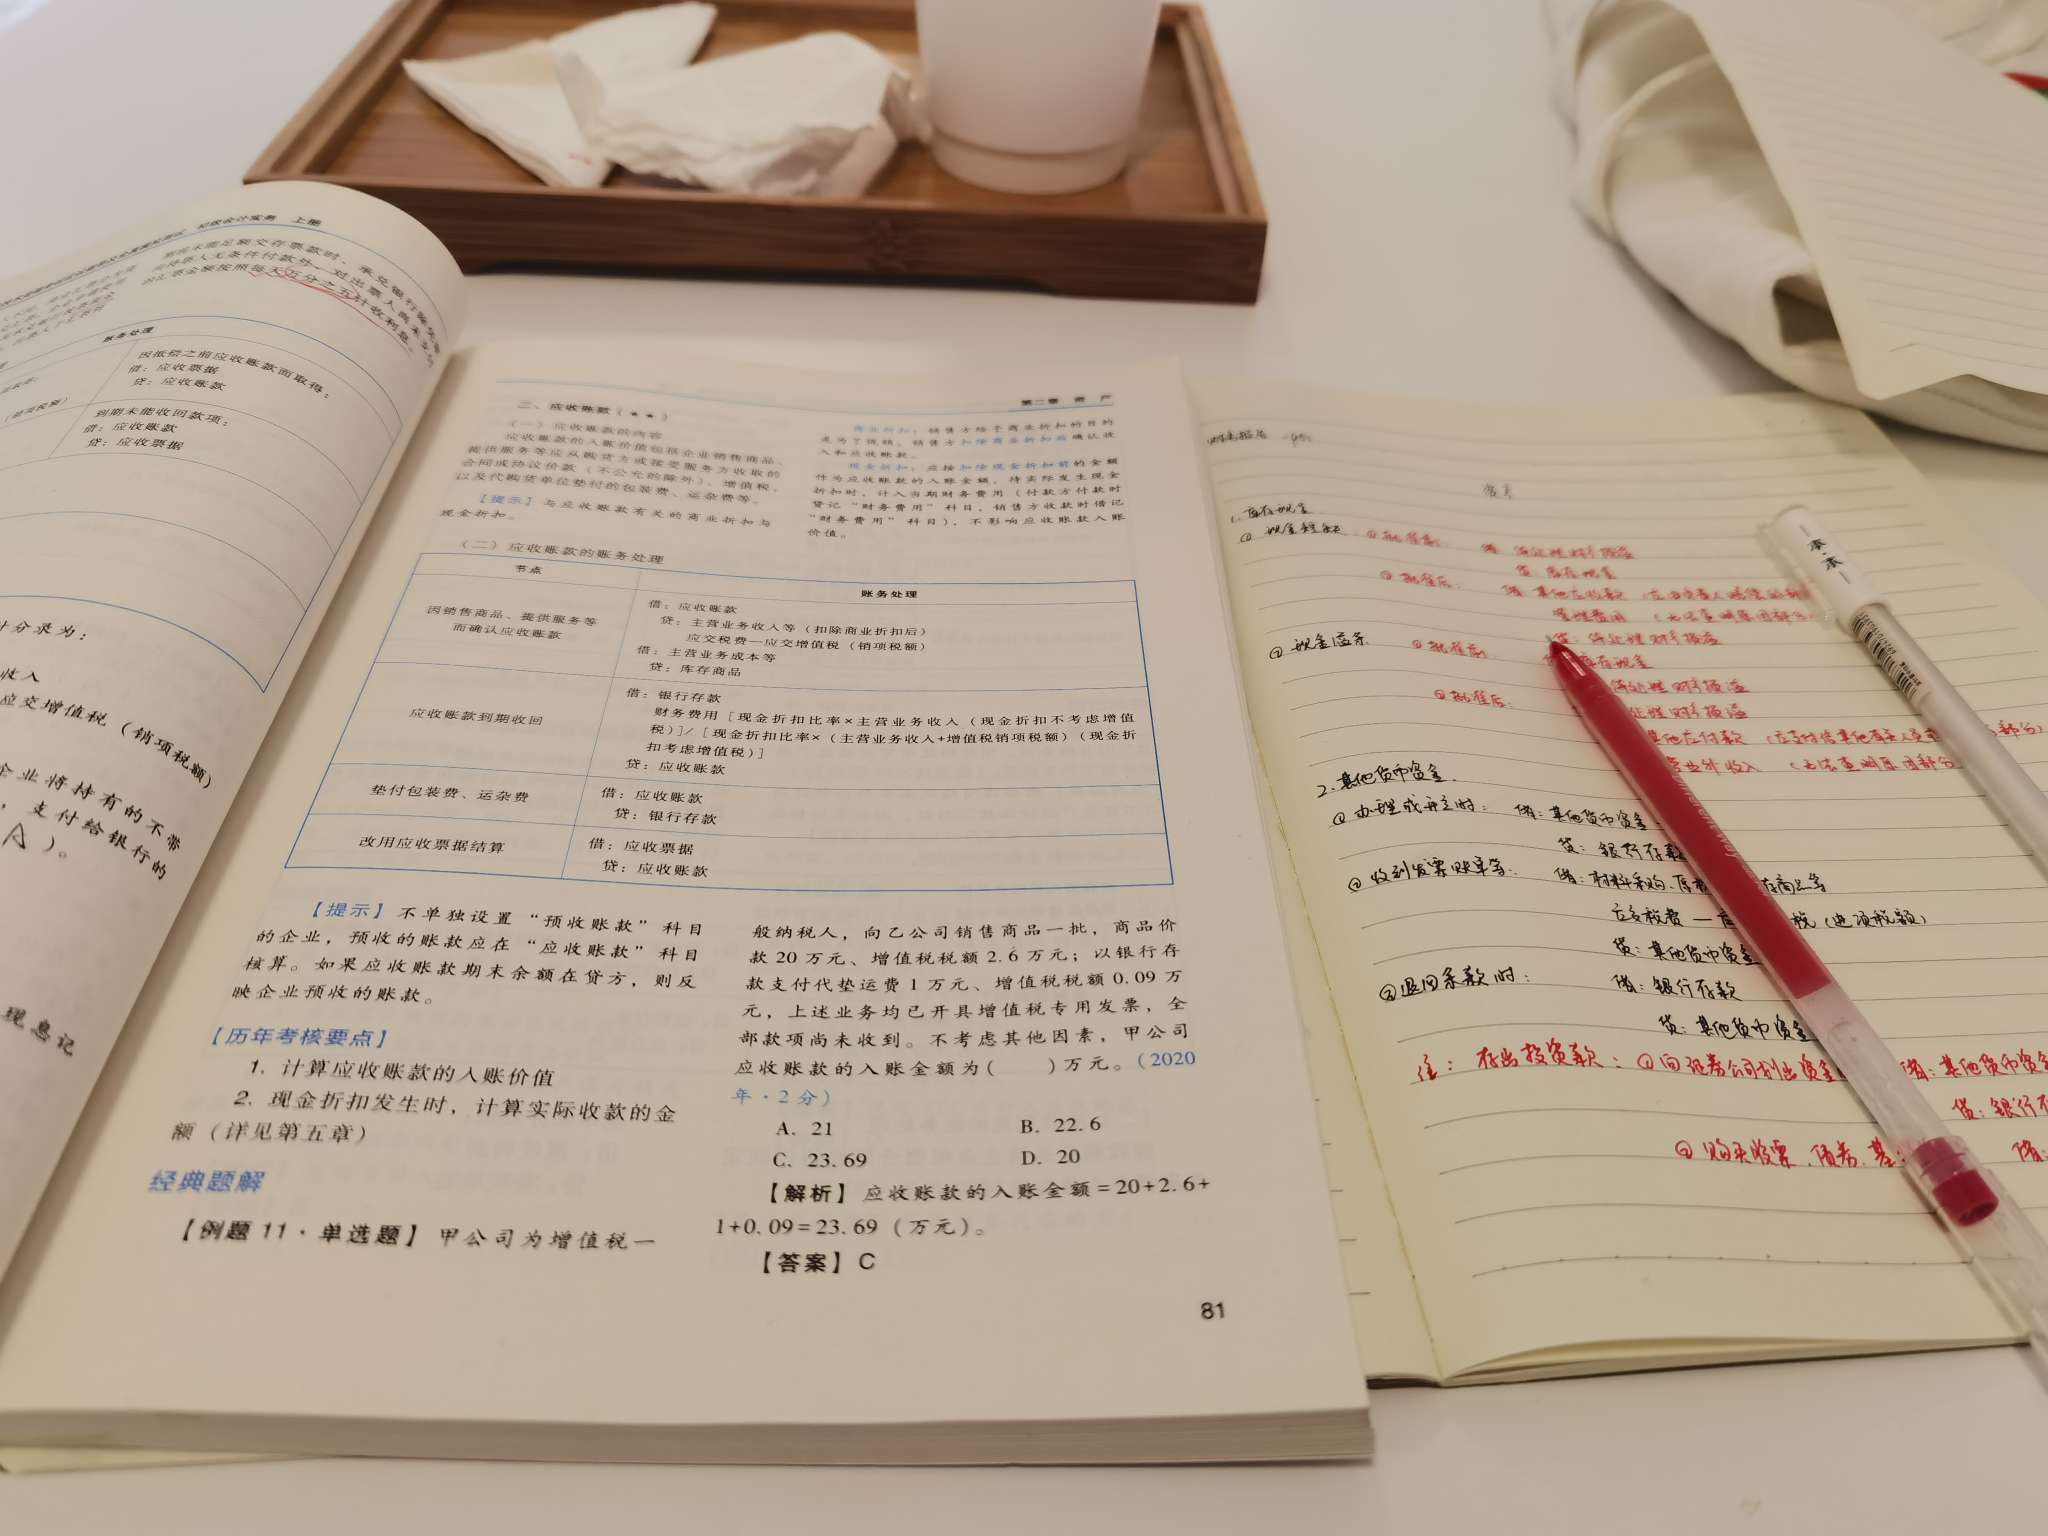 初级会计实务 上册
期前未能足额交存票款时，承兑银行除凭票
向持票人无条件付款外，对出票人尚未支付
的汇票金额按照每天五分之五计收利息。
账务处理
因抵偿之前应收账款而取得：
借：应收票据
贷：应收账款
到期未能收回款项：
借：应收账款
贷：应收票据
计分录为：
收入
应交增值税（销项税额）
企业将持有的不带
，支付给银行的
A ）。
现息记
第二章 资 产
三、应收账款（★★）
（一）应收账款的内容
应收账款的入账价值包括企业销售商品、
提供服务等应从购货方或接受服务方收取的
合同或协议价款（不公允的除外）、增值税，
以及代购货单位垫付的包装费、运杂费等。
【提示】与应收账款有关的商业折扣与
现金折扣。
商业折扣：销售方给予商业折扣的目的
是为了促销，销售方扣除商业折扣后确认收
入和应收账款。
现金折扣：应按扣除现金折扣前的金额
作为应收账款的入账金额，待实际发生现金
折扣时，计入当期财务费用（付款方付款时
贷记“财务费用”科目，销售方收款时借记
“财务费用”科目），不影响应收账款入账
价值。
（二）应收账款的账务处理
节点 账务处理
因销售商品、提供服务等
而确认应收账款
借：应收账款
贷：主营业务收入等（扣除商业折扣后）
应交税费—应交增值税（销项税额）
借：主营业务成本等
贷：库存商品
应收账款到期收回
借：银行存款
财务费用［现金折扣比率×主营业务收入（现金折扣不考虑增值
税）］/［现金折扣比率×（主营业务收入+增值税销项税额）（现金折
扣考虑增值税）］
贷：应收账款
垫付包装费、运杂费
借：应收账款
贷：银行存款
改用应收票据结算
借：应收票据
贷：应收账款
【提示】不单独设置“预收账款”科目
的企业，预收的账款应在“应收账款”科目
核算。如果应收账款期末余额在贷方，则反
映企业预收的账款。
【历年考核要点】
1. 计算应收账款的入账价值
2. 现金折扣发生时，计算实际收款的金
额（详见第五章）
经典题解
【例题 11·单选题】甲公司为增值税一
般纳税人，向乙公司销售商品一批，商品价
款 20 万元、增值税税额 2.6 万元；以银行存
款支付代垫运费 1 万元、增值税税额 0.09 万
元，上述业务均已开具增值税专用发票，全
部款项尚未收到。不考虑其他因素，甲公司
应收账款的入账金额为（ ）万元。（2020
年·2 分）
A. 21 B. 22.6
C. 23.69 D. 20
【解析】应收账款的入账金额=20+2.6+
1+0.09=23.69（万元）。
【答案】C
81
1. 库存现金
① 现金短缺 ①批准前： 借：待处理财产损溢
贷：库存现金
②批准后： 借：其他应收款（应由负责人赔偿的部分
管理费用（无法查明原因部分）
贷：待处理财产损溢
② 现金溢余 ①批准前： 库存现金
待处理财产损溢
②批准后： 处理财产损溢
其他应付款（应支付给其他有关人员 部分）
营业外收入（无法查明原因部分
2. 其他货币资金
① 办理或开立时： 借：其他货币资金
贷：银行存款
② 收到发票账单等： 借：材料采购、 存商品等
应交税费— 税（进项税额）
贷：其他货币资金
③ 退回余款时： 借：银行存款
贷：其他货币资金
注：存出投资款：①向证券公司划出资金 借：其他货币资金
贷：银行存
②购买股票、债券、基 借：
本·本